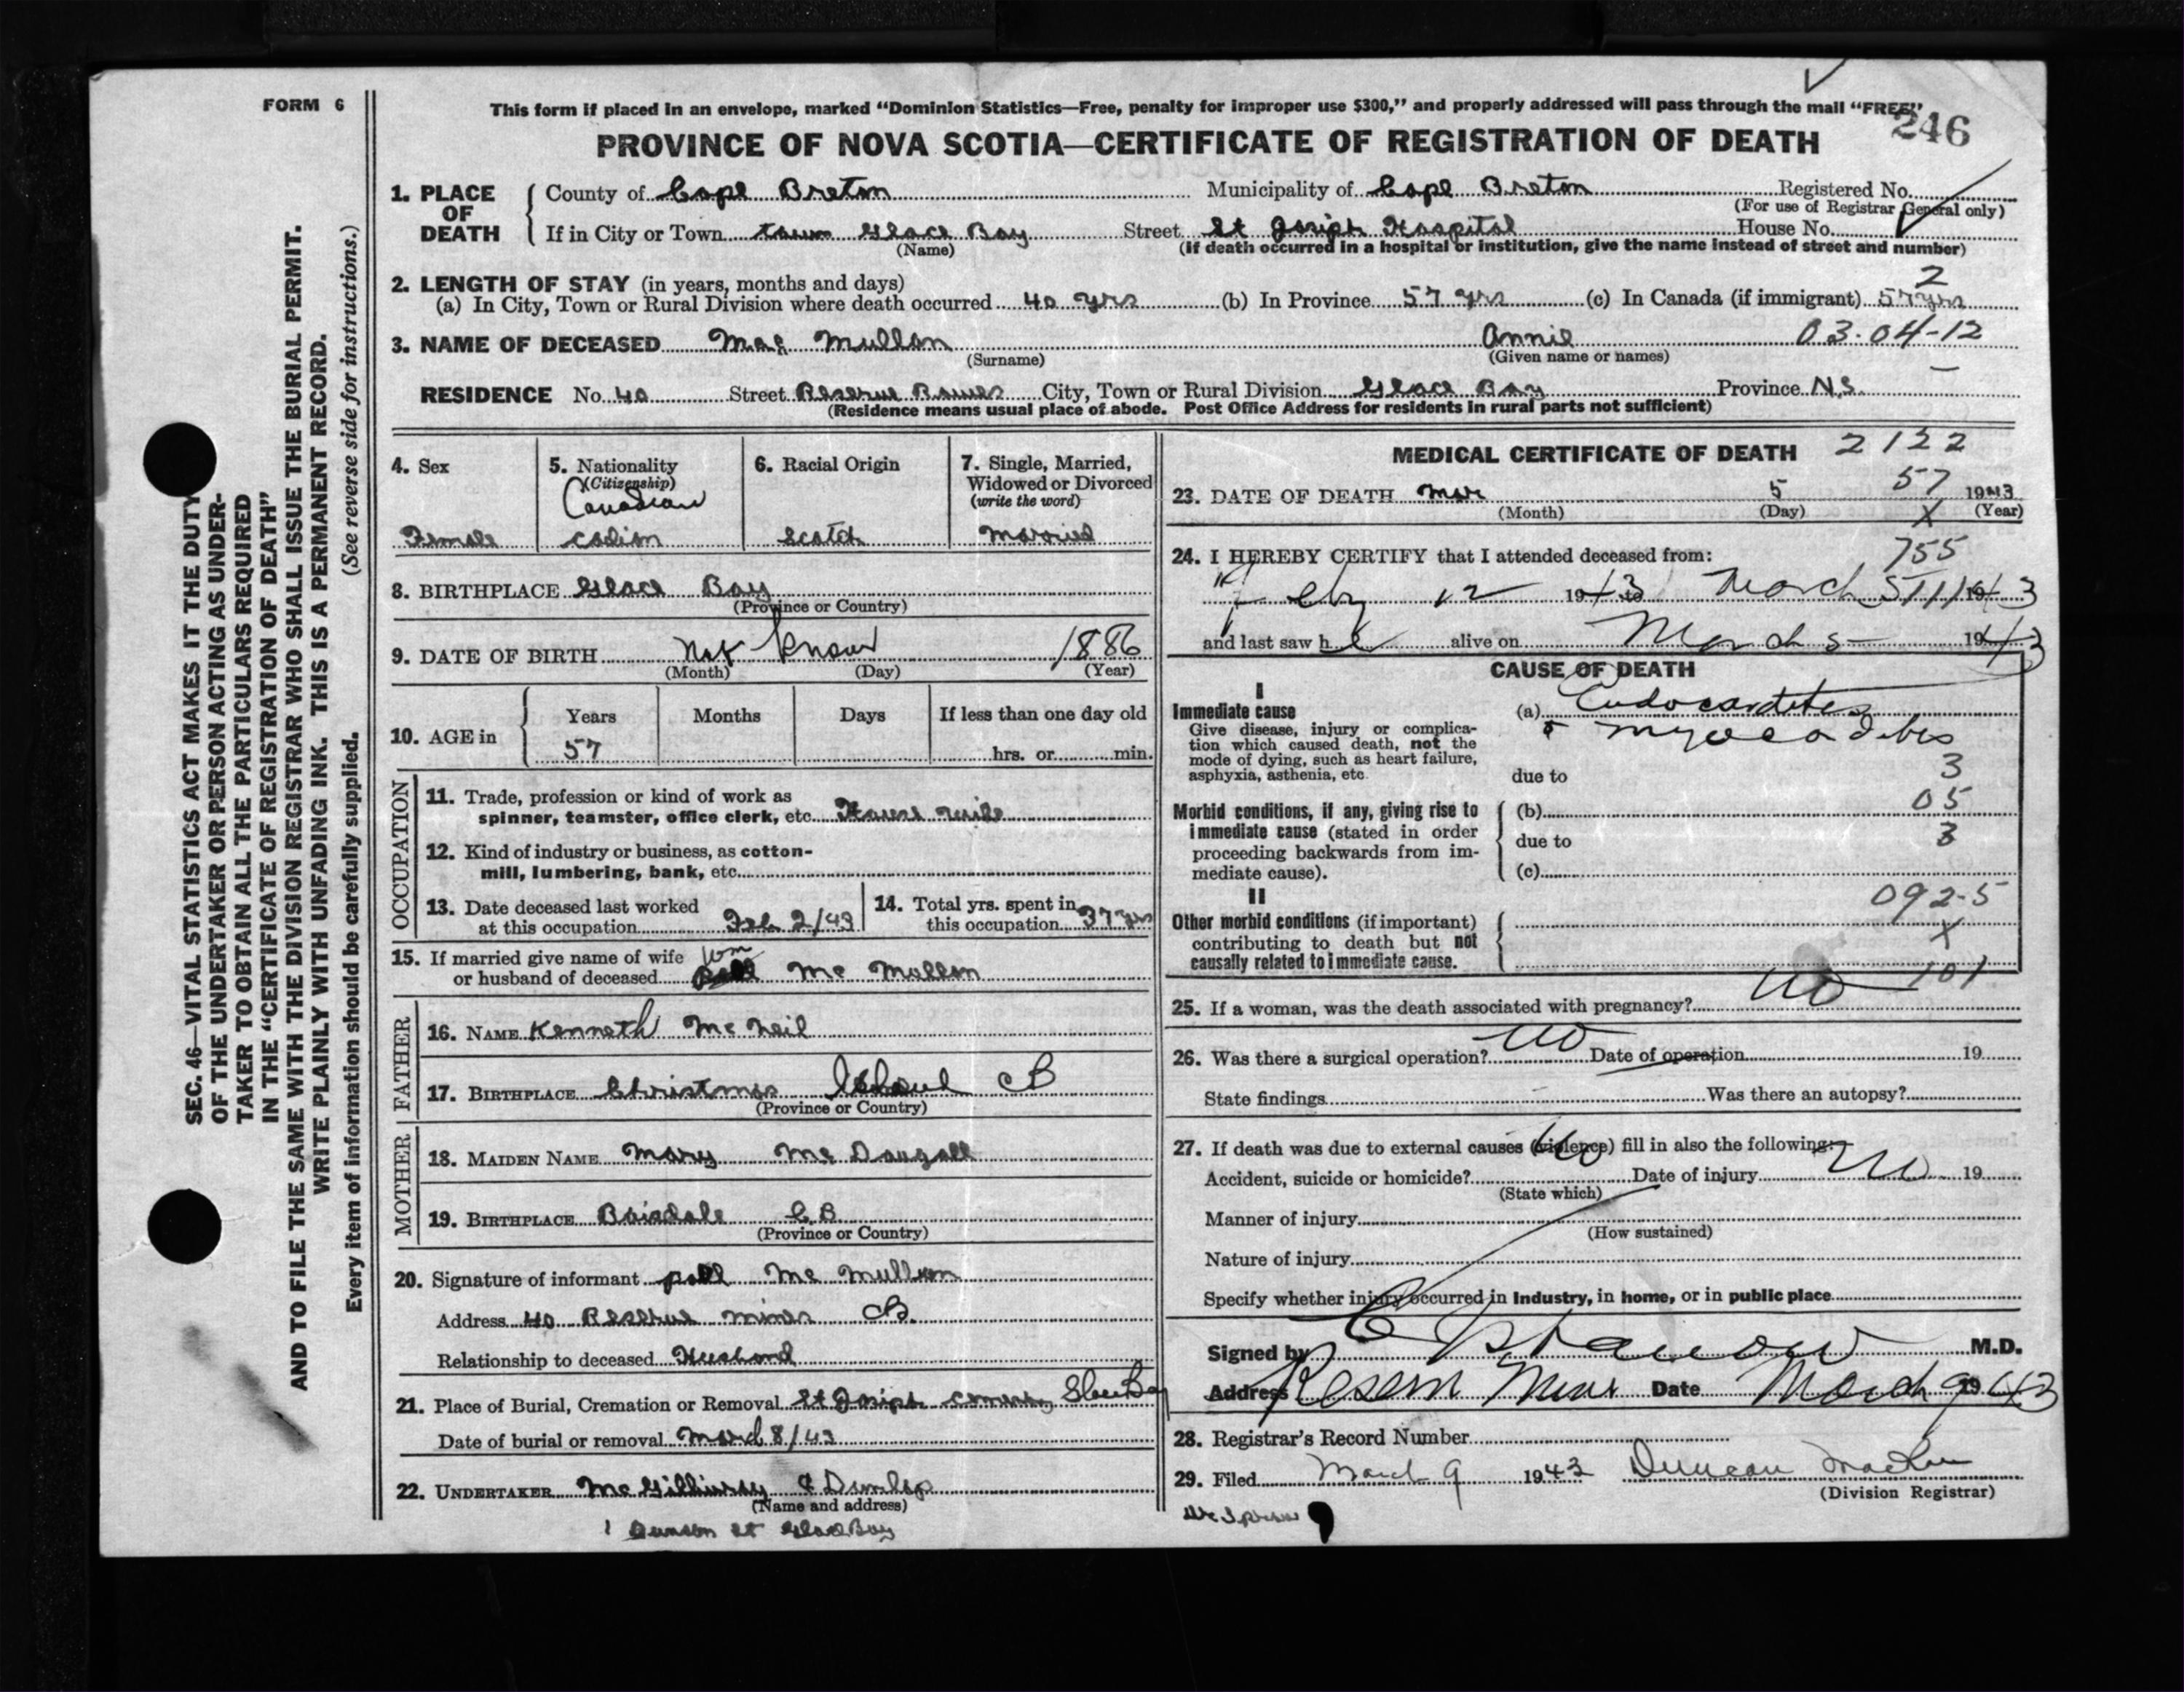 FORM 6
This form if placed in an envelope, marked “Dominion Statistics—Free, penalty for improper use $300,” and properly addressed will pass through the mail “FREE”
246
PROVINCE OF NOVA SCOTIA—CERTIFICATE OF REGISTRATION OF DEATH
1. PLACE OF DEATH
County of Cape Breton Municipality of Cape Breton Registered No.
(For use of Registrar General only)
If in City or Town town Glace Bay Street St Joseph Hospital House No.
(Name) (If death occurred in a hospital or institution, give the name instead of street and number)
2. LENGTH OF STAY (in years, months and days) 2
(a) In City, Town or Rural Division where death occurred 40 yrs (b) In Province 57 yrs (c) In Canada (if immigrant) 57 yrs
3. NAME OF DECEASED Mac Mullan Annie 03-04-12
(Surname) (Given name or names)
RESIDENCE No. 40 Street Reserve City, Town or Rural Division Glace Bay Province N.S.
(Residence means usual place of abode. Post Office Address for residents in rural parts not sufficient)
4. Sex
Female
5. Nationality
(Citizenship)
Canadian
6. Racial Origin
Scotch
7. Single, Married, Widowed or Divorced
(write the word)
Married
8. BIRTHPLACE Glace Bay
(Province or Country)
9. DATE OF BIRTH Not Know 1886
(Month) (Day) (Year)
10. AGE in Years Months Days If less than one day old
57 hrs. or min.
OCCUPATION
11. Trade, profession or kind of work as
spinner, teamster, office clerk, etc. House wife
12. Kind of industry or business, as cotton-
mill, lumbering, bank, etc.
13. Date deceased last worked
at this occupation Feb 2/43
14. Total yrs. spent in
this occupation 37 yrs
15. If married give name of wife Wm
or husband of deceased Mc Mullan
FATHER
16. NAME Kenneth Mc Neil
17. BIRTHPLACE Christmas Island CB
(Province or Country)
MOTHER
18. MAIDEN NAME Mary Mc Dougall
19. BIRTHPLACE Boisdale C.B
(Province or Country)
20. Signature of informant Mc Mullan
Address 40 Reserve mines CB.
Relationship to deceased Husband
21. Place of Burial, Cremation or Removal St Joseph Glace Bay
Date of burial or removal March 8/43
22. UNDERTAKER Mc Gillivray & Dunlop
(Name and address)
St Glace Bay
MEDICAL CERTIFICATE OF DEATH 2122
57
23. DATE OF DEATH Mar 5 1943
(Month) (Day) (Year)
X
24. I HEREBY CERTIFY that I attended deceased from: 755
Feby 12 1943 to March 5 1943
and last saw h alive on March 5 1943
CAUSE OF DEATH
I
Immediate cause
Give disease, injury or complica-
tion which caused death, not the
mode of dying, such as heart failure,
asphyxia, asthenia, etc.
(a) Endocarditis
& myocarditis
due to 3
Morbid conditions, if any, giving rise to
immediate cause (stated in order
proceeding backwards from im-
mediate cause).
(b) 05
due to 3
(c)
II
Other morbid conditions (if important)
contributing to death but not
causally related to immediate cause.
092-5
X
101
25. If a woman, was the death associated with pregnancy? no
26. Was there a surgical operation? no Date of operation 19
State findings Was there an autopsy?
27. If death was due to external causes (violence) fill in also the following:
Accident, suicide or homicide? no Date of injury no 19
(State which)
Manner of injury
(How sustained)
Nature of injury
Specify whether injury occurred in Industry, in home, or in public place
Signed by M.D.
Address Date March 9 1943
28. Registrar’s Record Number
29. Filed March 9 1943 Duncan
(Division Registrar)
SEC. 46—VITAL STATISTICS ACT MAKES IT THE DUTY
OF THE UNDERTAKER OR PERSON ACTING AS UNDER-
TAKER TO OBTAIN ALL THE PARTICULARS REQUIRED
IN THE “CERTIFICATE OF REGISTRATION OF DEATH”
AND TO FILE THE SAME WITH THE DIVISION REGISTRAR WHO SHALL ISSUE THE BURIAL PERMIT.
WRITE PLAINLY WITH UNFADING INK. THIS IS A PERMANENT RECORD.
Every item of information should be carefully supplied. (See reverse side for instructions.)